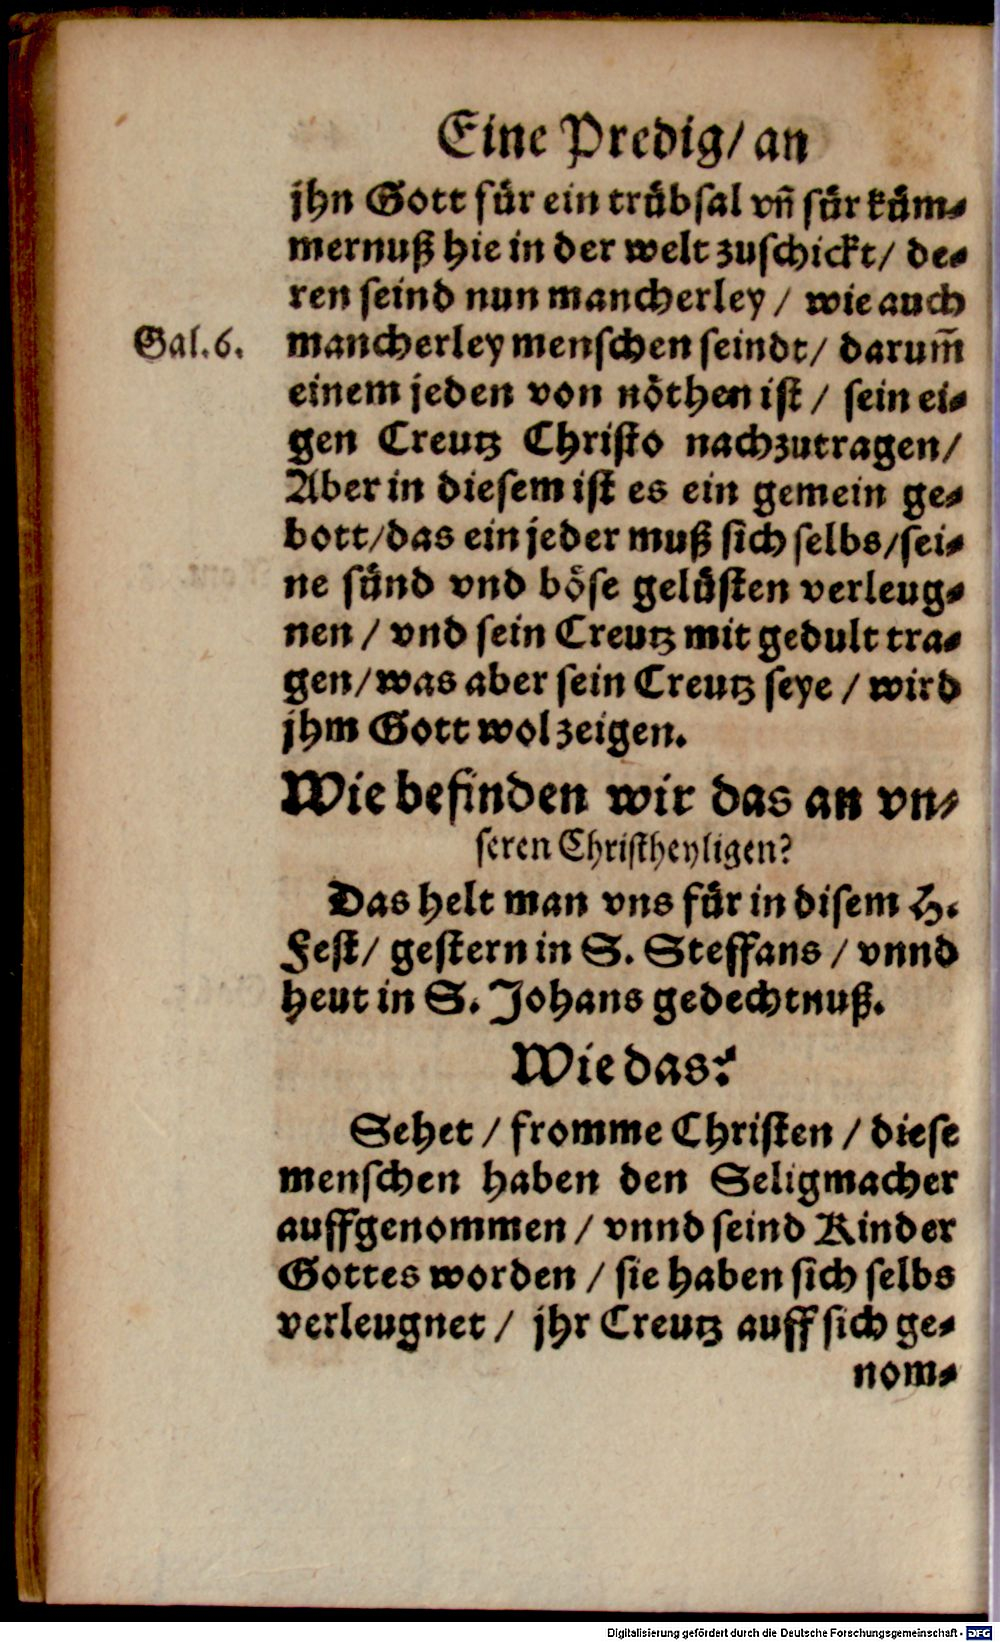 Eine Predig/ an
jhn Gott für ein trübsal vn̄ für küm-
mernuß hie in der welt zuschickt/ de-
ren seind nun mancherley / wie auch
Gal. 6.
mancherley menschen seindt/ darum̄
einem jeden von nöthen ist / sein ei-
gen Creutz Christo nachzutragen/
Aber in diesem ist es ein gemein ge-
bott/das ein jeder muß sich selbs/sei-
ne sünd vnd böse gelüsten verleug-
nen / vnd sein Creutz mit gedult tra-
gen/was aber sein Creutz seye / wird
jhm Gott wol zeigen.
Wie befinden wir das an vn-
seren Christheyligen?
Das helt man vns für in disem H.
Fest/ gestern in S. Steffans / vnnd
heut in S. Johans gedechtnuß.
Wie das?
Sehet / fromme Christen / diese
menschen haben den Seligmacher
auffgenommen / vnnd seind Kinder
Gottes worden / sie haben sich selbs
verleugnet / jhr Creutz auff sich ge-
nom-
Digitalisierung gefördert durch die Deutsche Forschungsgemeinschaft - DFG